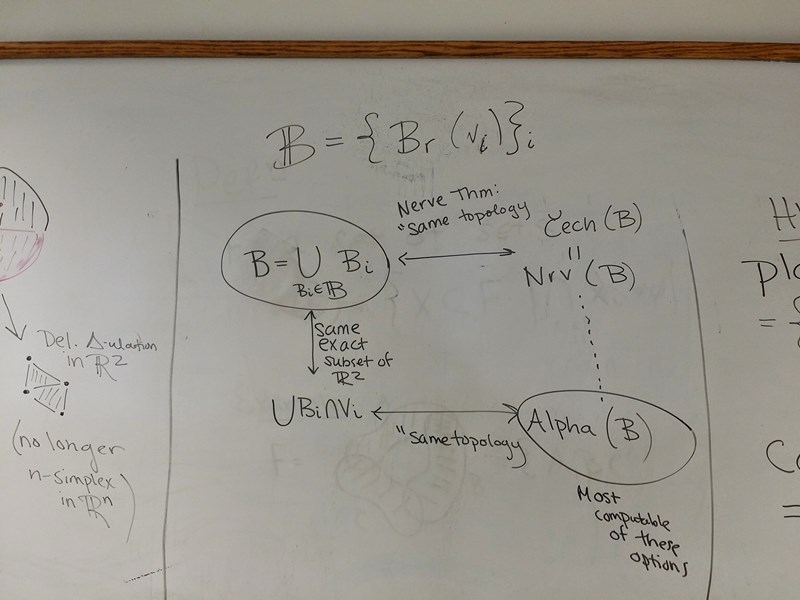 𝔹 = { Br (vi)}i
Nerve Thm:
"same topology
Čech (B)
=
Nrv (B)
B = ∪ Bi
Bi∈𝔹
Same
exact
subset of
ℝ2
∪Bi∩Vi
"same topology
Alpha (B)
Most
computable
of these
options
Del. Δ-ulation
in ℝ2
(no longer
n-simplex
in ℝn)
Pla
=
=